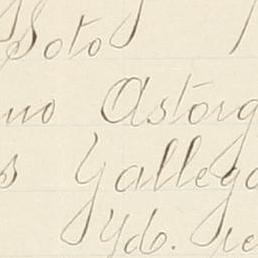 Soto
no Astorg
s Gallego
Yd. re